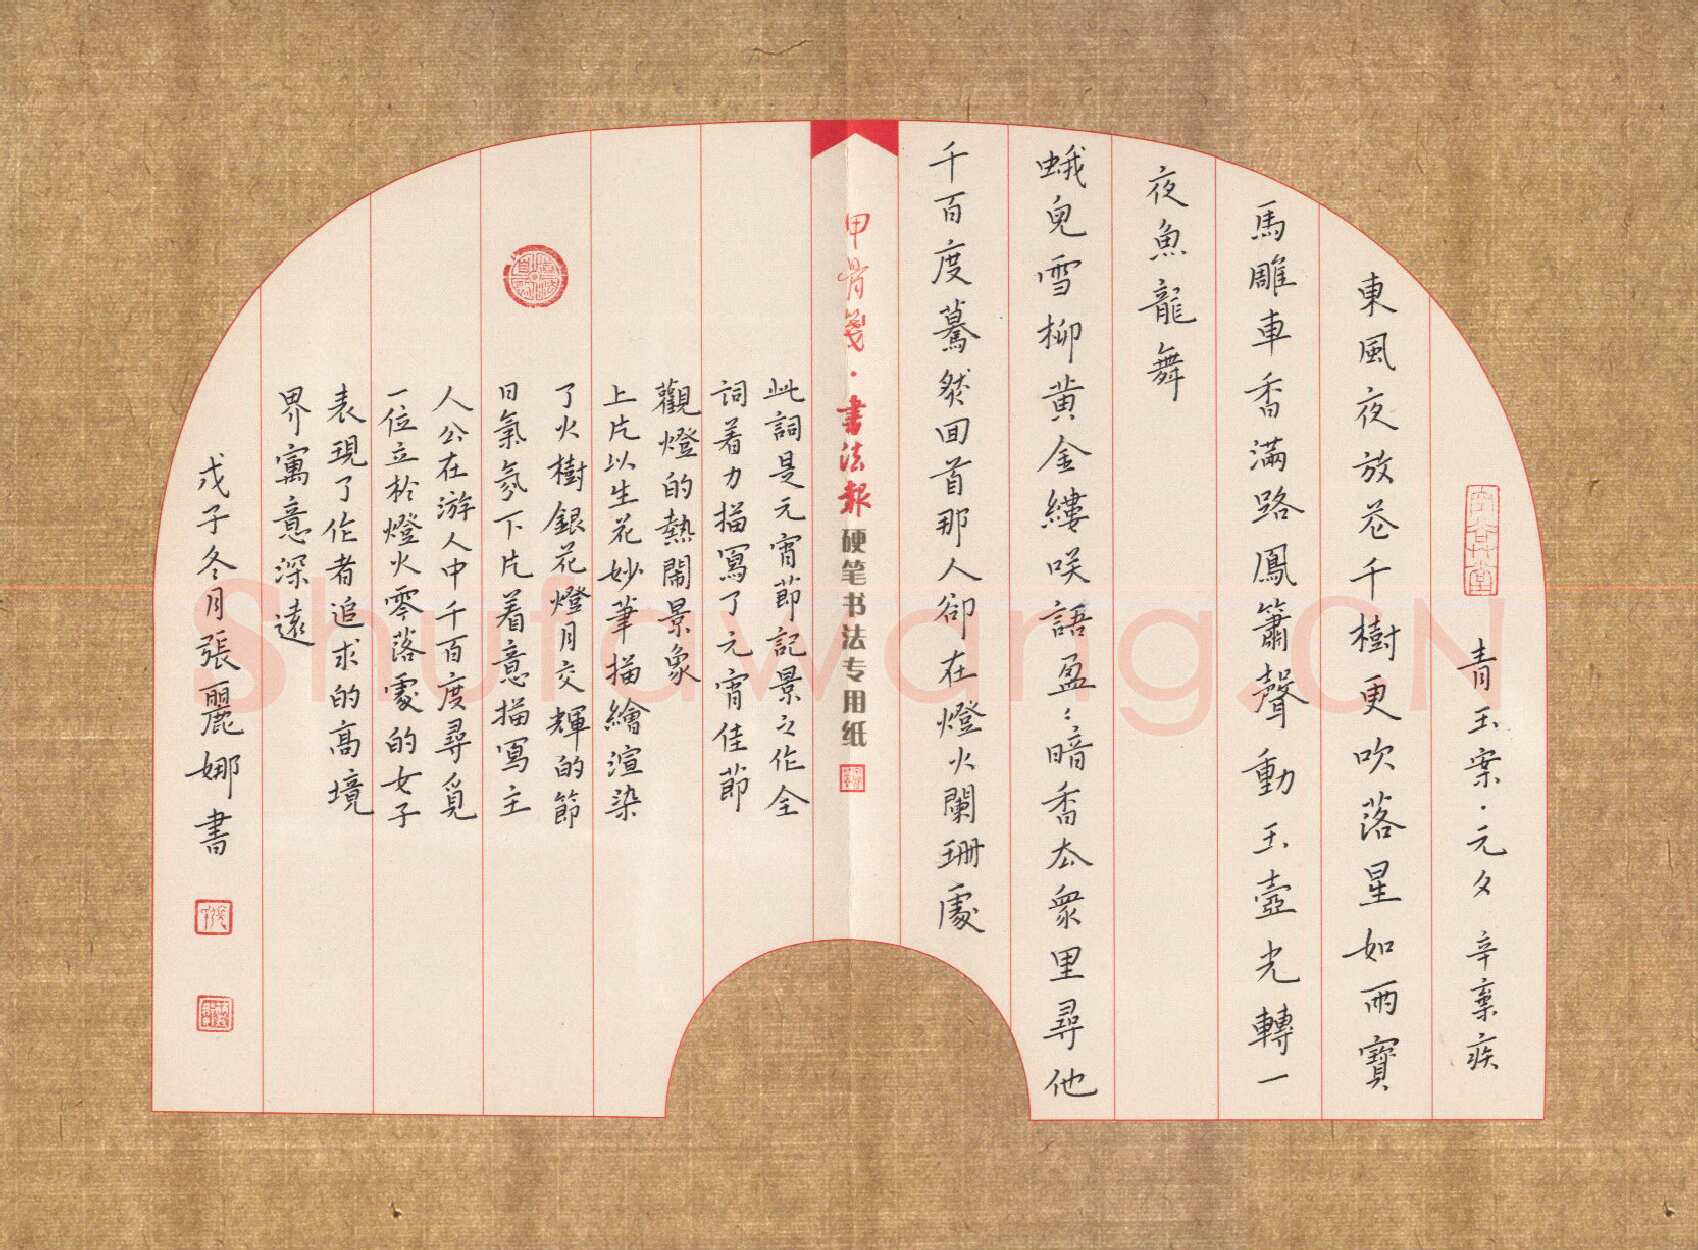 青玉案·元夕 辛棄疾
東風夜放花千樹更吹落星如雨寶
馬雕車香滿路鳳簫聲動玉壺光轉一
夜魚龍舞
蛾兒雪柳黄金縷咲語盈〻暗香去衆里尋他
千百度驀然回首那人卻在燈火闌珊處
甲骨笺·书法报硬笔书法专用纸
此詞是元宵節記景之作全
詞着力描寫了元宵佳節
觀燈的熱鬧景象
上片以生花妙筆描繪渲染
了火樹銀花燈月交輝的節
日氣氛下片着意描寫主
人公在游人中千百度尋覓
一位立於燈火零落處的女子
表現了作者追求的高境
界寓意深遠
戊子冬月張麗娜書
Shufawang.CN